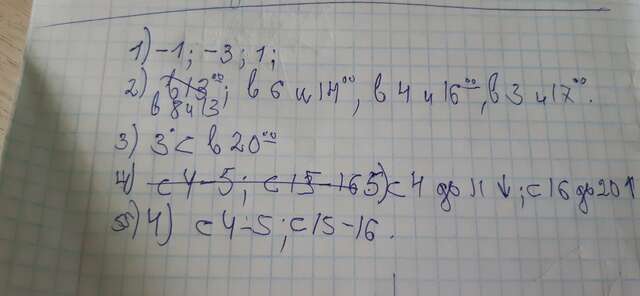 1) -1; -3; 1;
2) в 13⁰⁰; в 6 и 14⁰⁰, в 4 и 16⁰⁰, в 3 и 17⁰⁰.
в 8 и 13
3) 3°С в 20⁰⁰
4) с 4-5; с 15-16 5) с 4 до 11 ↓; с 16 до 20 ↑
5) 4) с 4-5; с 15-16.